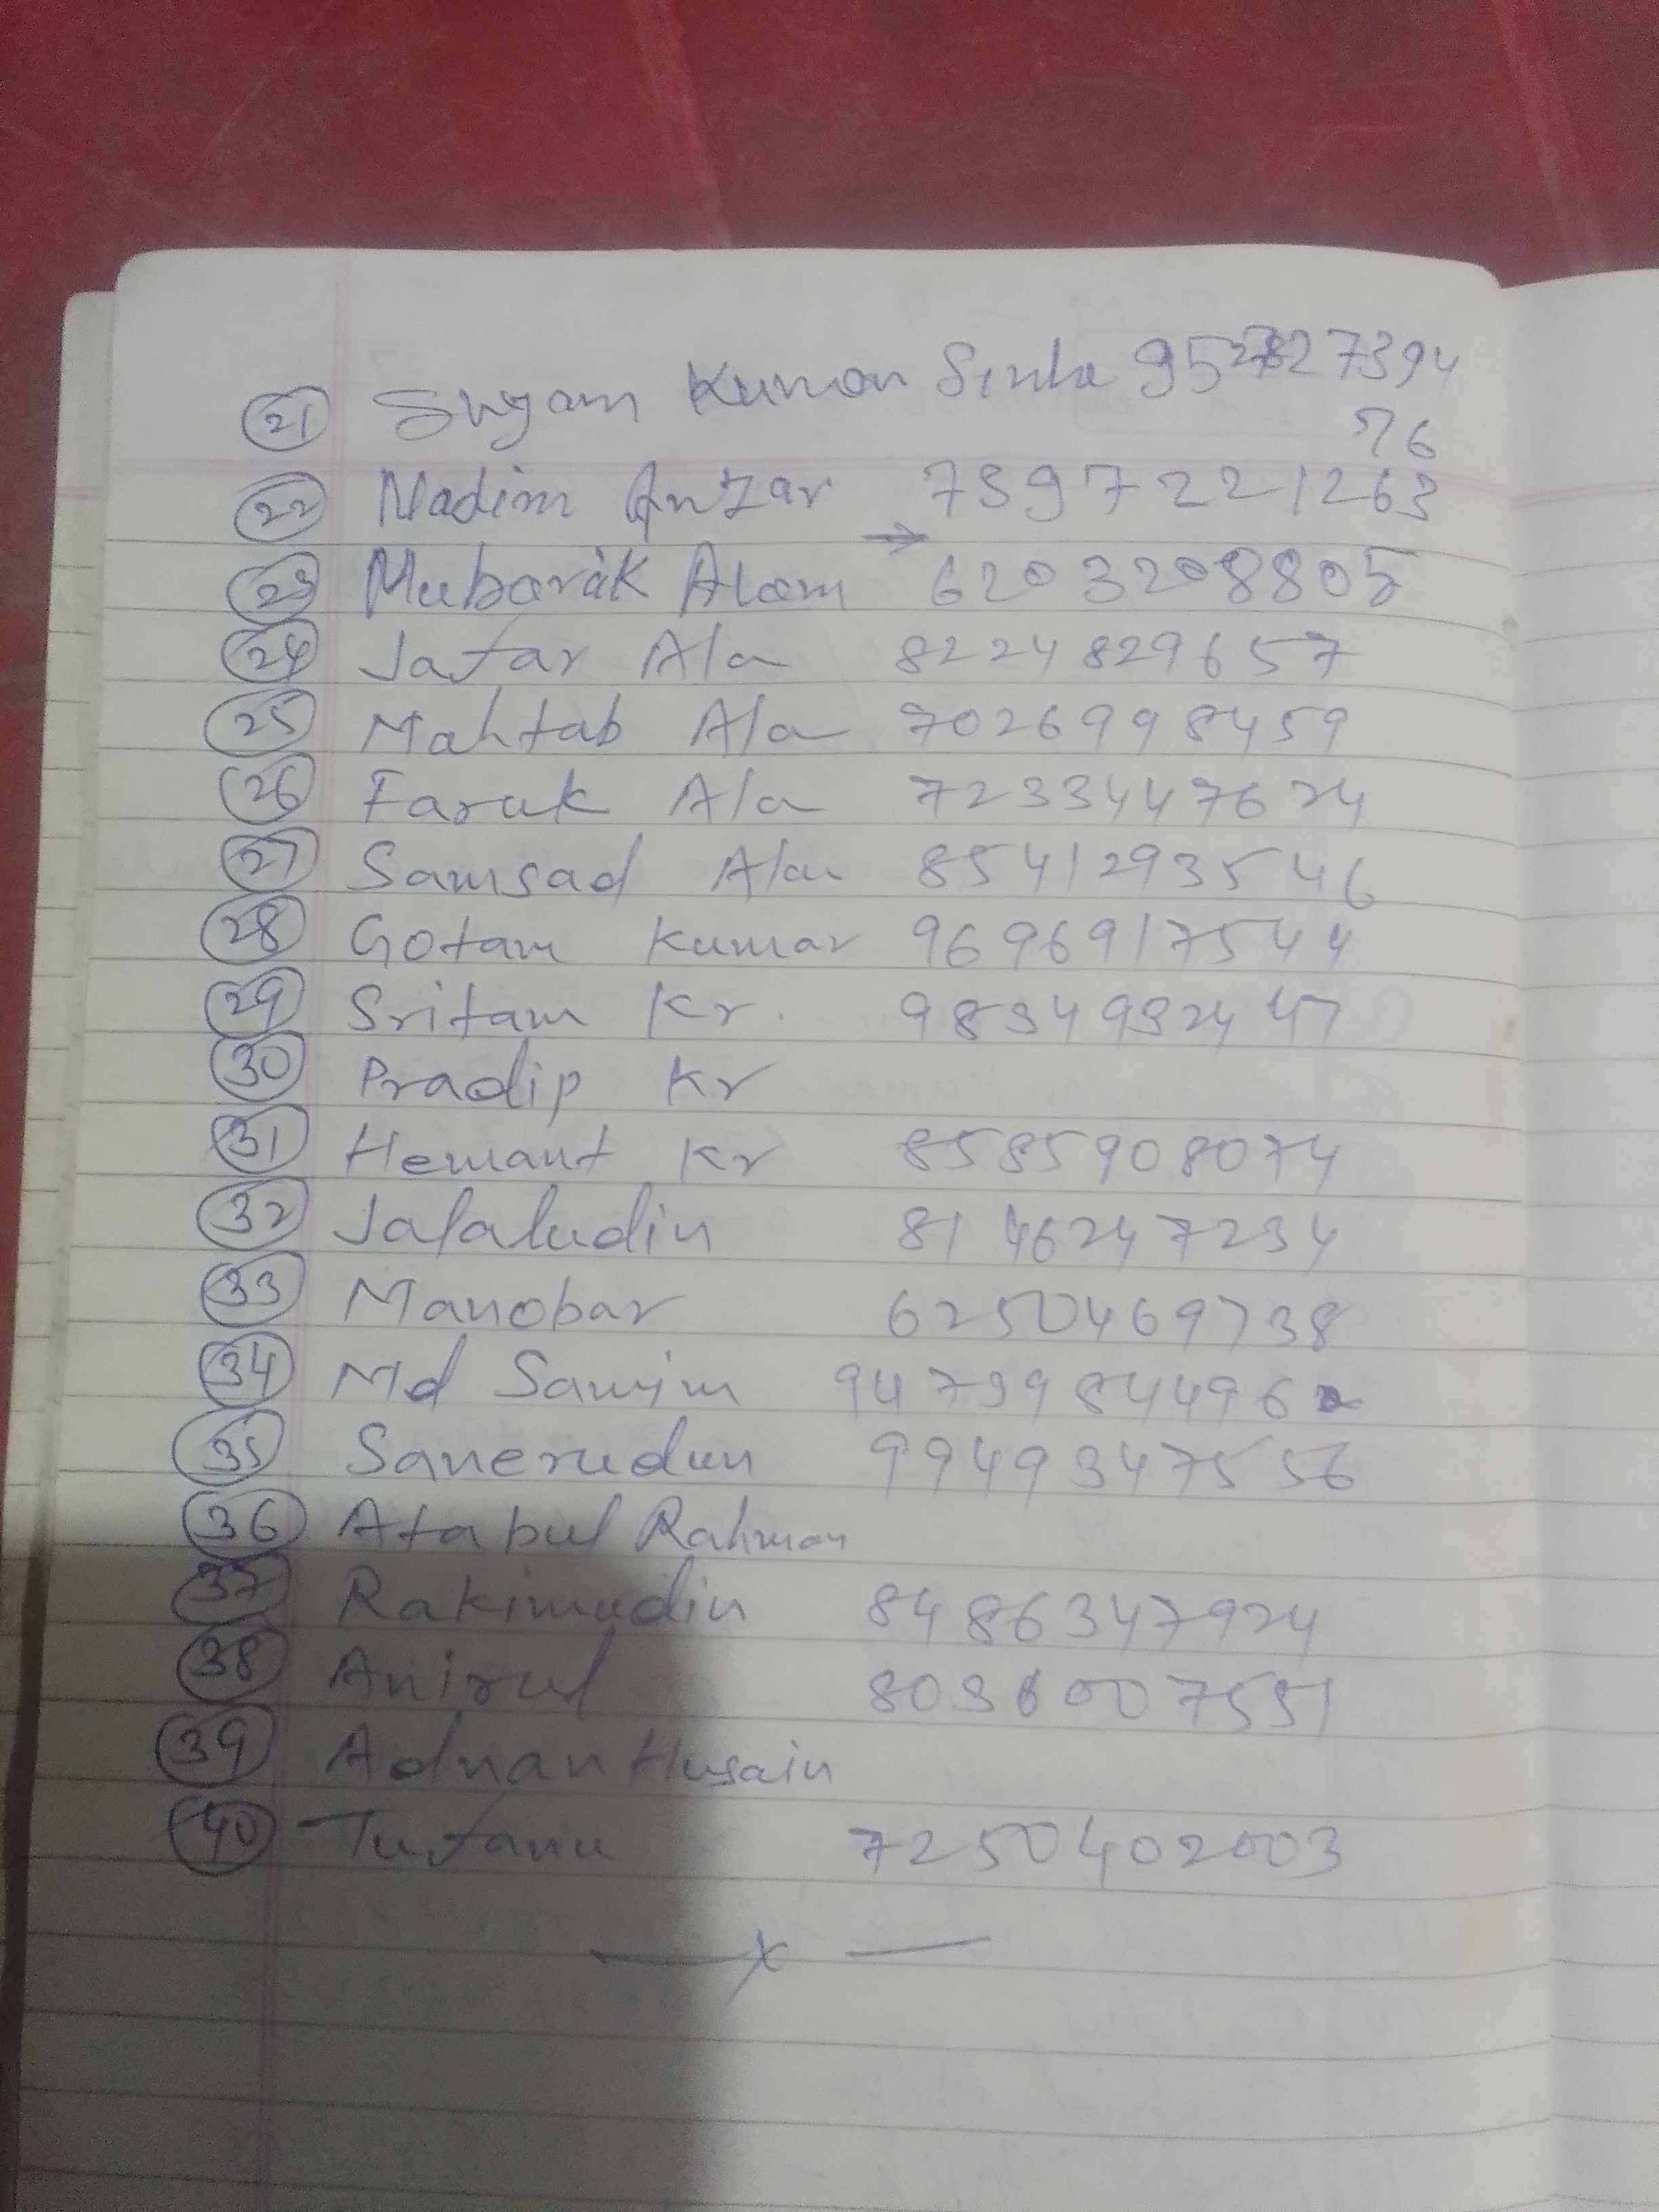 21 Suyam Kumar Sinha
76
22 Nadim Anzar 7397221263
→
23 Mubarak Alam 6203208805
24 Jafar Ala 8224829657
25 Mahtab Ala 7026998459
26 Faruk Ala 7233447624
27 Samsad Ala 8541293546
28 Gotam Kumar 9696917544
29 Sritam Kr. 9834992447
30 Pradip Kr
31 Hemant Kr 8585908074
32 Jalaludin 8146247234
33 Manobar 6250469738
34 Md Samim
35 Sanerudun 9949347556
36 Atabul Rahman
37 Rakimudin 8486347924
38 Anirul 8036007551
39 Adnan Husain
40 Tufanu 7250402003
— x —